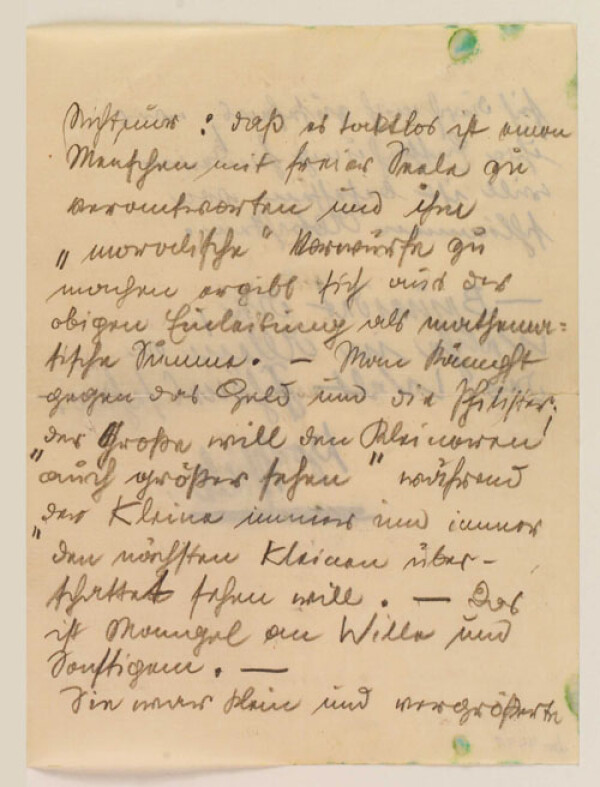 Nicht nur : daß es taktlos ist einen
Menschen mit freier Seele zu
verantworten und ihm
„ moralische " Vorwürfe zu
machen ergibt sich aus der
obigen Einleitung als mathema=
tische Summe. — Man kämpft
gegen das Geld und die Philister;
„der Große will den Kleineren
auch größer sehen " während
„der Kleine immer und immer
den nächsten Kleinen über-
schattet sehen will. — Das
ist Mangel an Wille und
Sonstigem. —
Sie war klein und vergrößerte